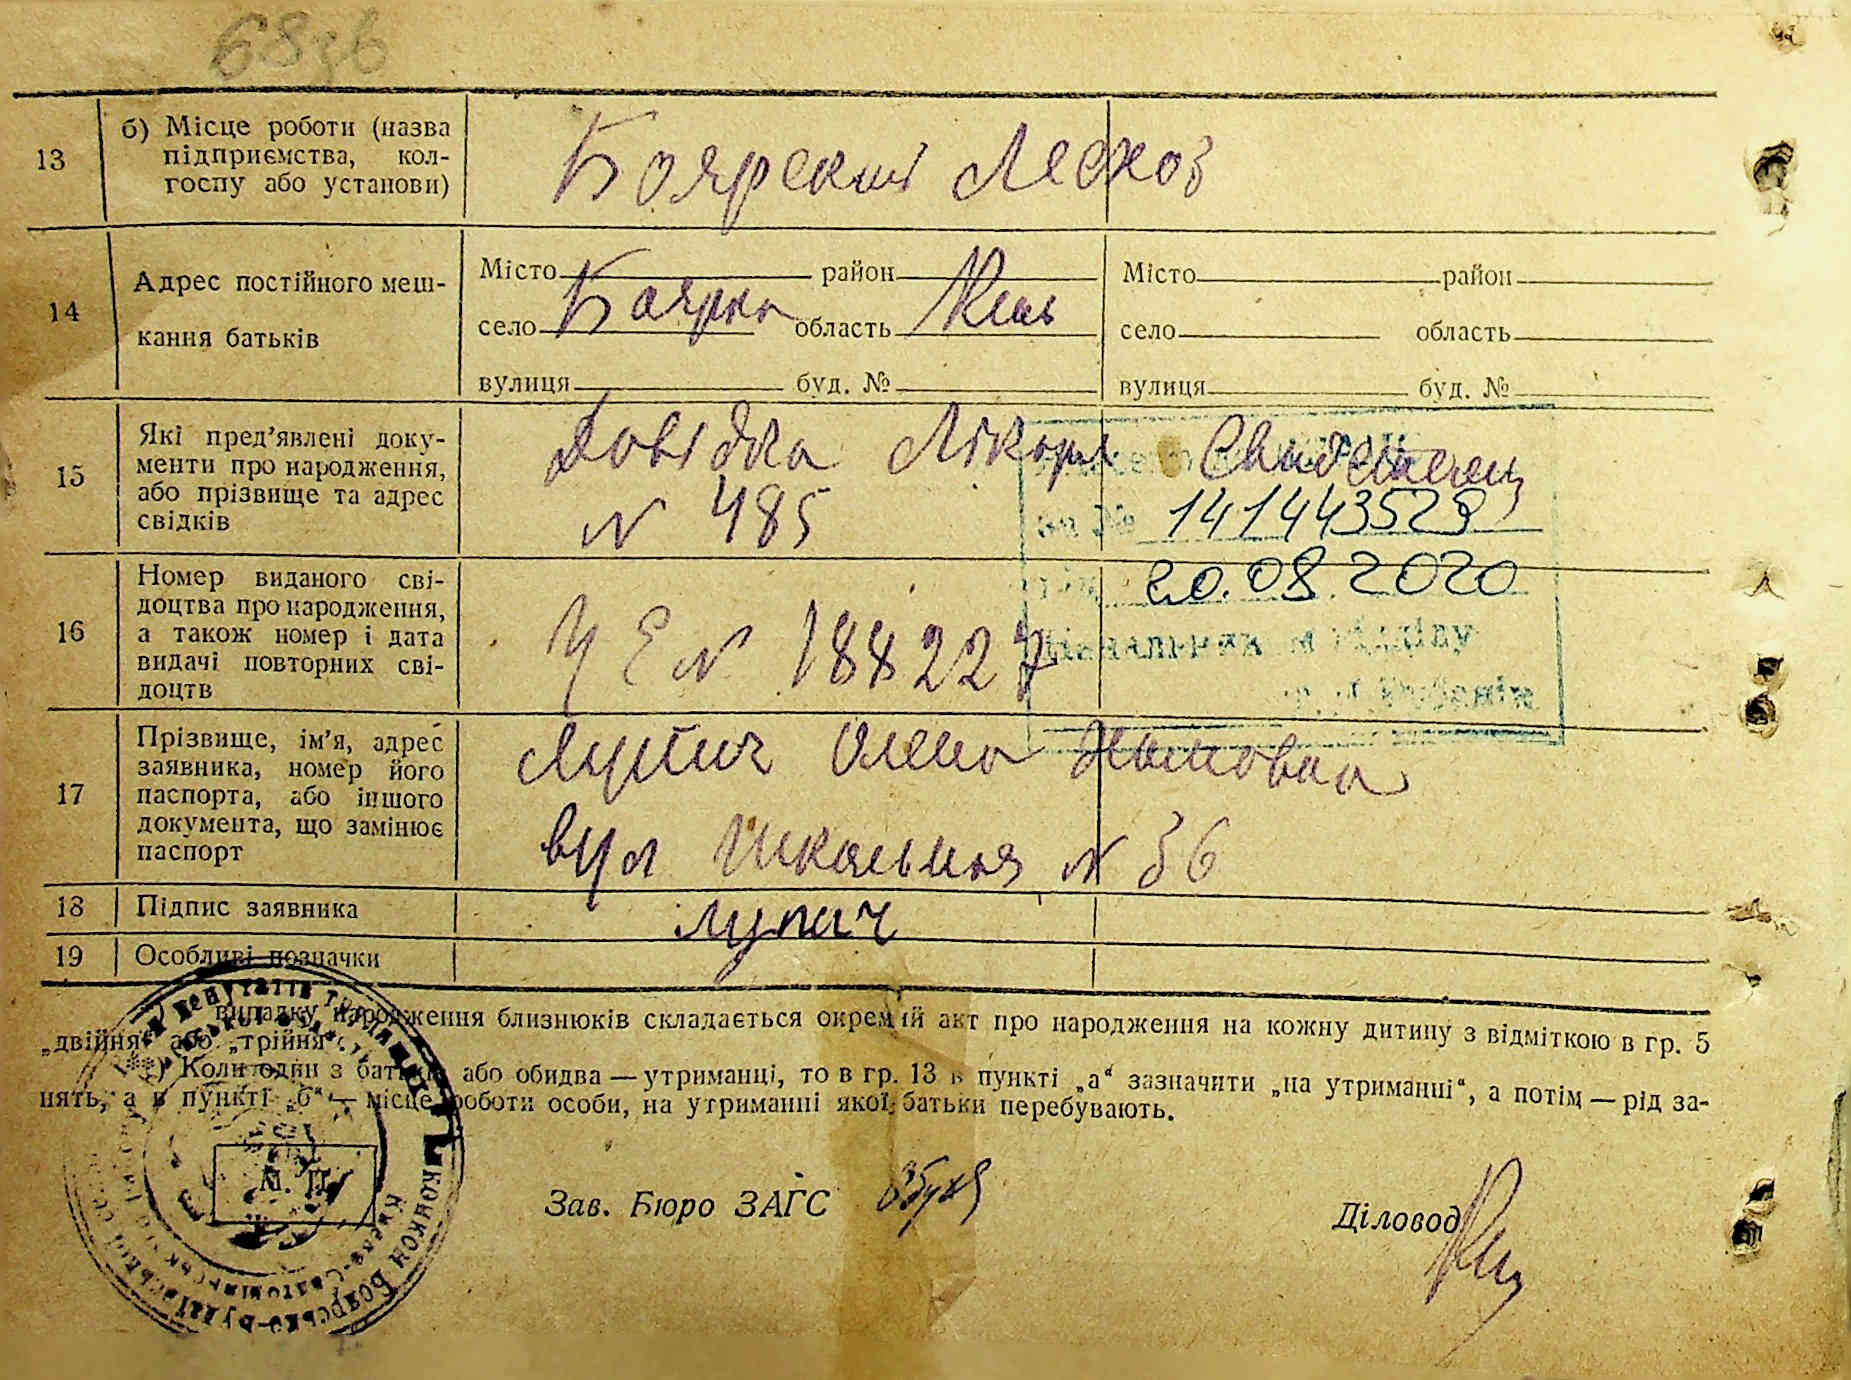 68зв
13 б) Місце роботи (назва підприємства, кол-госпу або установи) Боярский Лесхоз
14 Адрес постійного меш-кання батьків
Місто район Місто район
село Боярка область Київ село область
вулиця буд. № вулиця буд. №
15 Які пред’явлені доку-
менти про народження,
або прізвище та адрес
свідків
Довідка Лікаря
N 485
141443523
20.08.2020
16 Номер виданого сві-
доцтва про народження,
а також номер і дата
видачі повторних сві-
доцтв
УЕ N 188227
17 Прізвище, ім’я, адрес
заявника, номер його
паспорта, або іншого
документа, що замінює
паспорт
Лупич Олена
вул Школьная N 36
18 Підпис заявника Лупич
19 Особливі позначки
випадку народження близнюків складається окремий акт про народження на кожну дитину з відміткою в гр. 5
„двійня“ або „трійня“.
**) Коли один з батьків або обидва — утриманці, то в гр. 13 в пункті „а“ зазначити „на утриманні“, а потім — рід за-
нять, а в пункті „б“ — місце роботи особи, на утриманні якої батьки перебувають.
М. П.
Зав. Бюро ЗАГС
Діловод